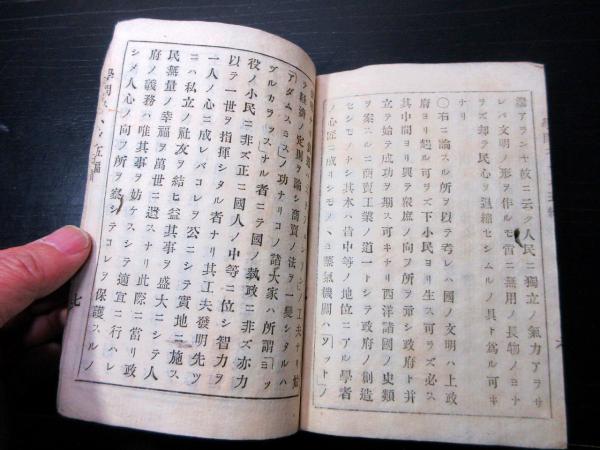 益アランヤ故ニ云ク人民ニ獨立ノ氣力アラザ
レバ文明ノ形ヲ作ルモ啻ニ無用ノ長物ノミナ
ラズ却テ民心ヲ退縮セシムルノ具ト爲ル可キ
ナリ
○右ニ論スル所ヲ以テ考レバ國ノ文明ハ上政
府ヨリ起ル可ラズ下小民ヨリ生ス可ラズ必ス
其中間ヨリ興テ衆庶ノ向フ所ヲ示シ政府ト并
立テ始テ成功ヲ期ス可キナリ西洋諸國ノ史類
ヲ案スルニ商賣工業ノ道一トシテ政府ノ創造
セシモノナシ其本ハ皆中等ノ地位ニアル學者
ノ心匠ニ成リシモノノミ蒸氣機關ハ「ワット」ノ
ノ工夫ナリ始
テ經濟ノ定則ヲ論シ商賣ノ法ヲ一變シタルハ
アダムスミス」ノ功ナリコノ諸大家ハ所謂「ミッ
ヅルカラッス」ナル者ニテ國ノ執政ニ非ズ亦力
役ノ小民ニ非ズ正ニ國人ノ中等ニ位シ智力ヲ
以テ一世ヲ指揮シタル者ナリ其工夫發明先ツ
一人ノ心ニ成レバコレヲ公ニシテ實地ニ施ス
ニハ私立ノ社友ヲ結ヒ益其事ヲ盛大ニシテ人
民無量ノ幸福ヲ萬世ニ遺スナリ此際ニ當リ政
府ノ義務ハ唯其事ヲ妨ケズシテ適宜ニ行ハレ
シメ人心ノ向フ所ヲ察シテコレヲ保護スルノ
五編
七